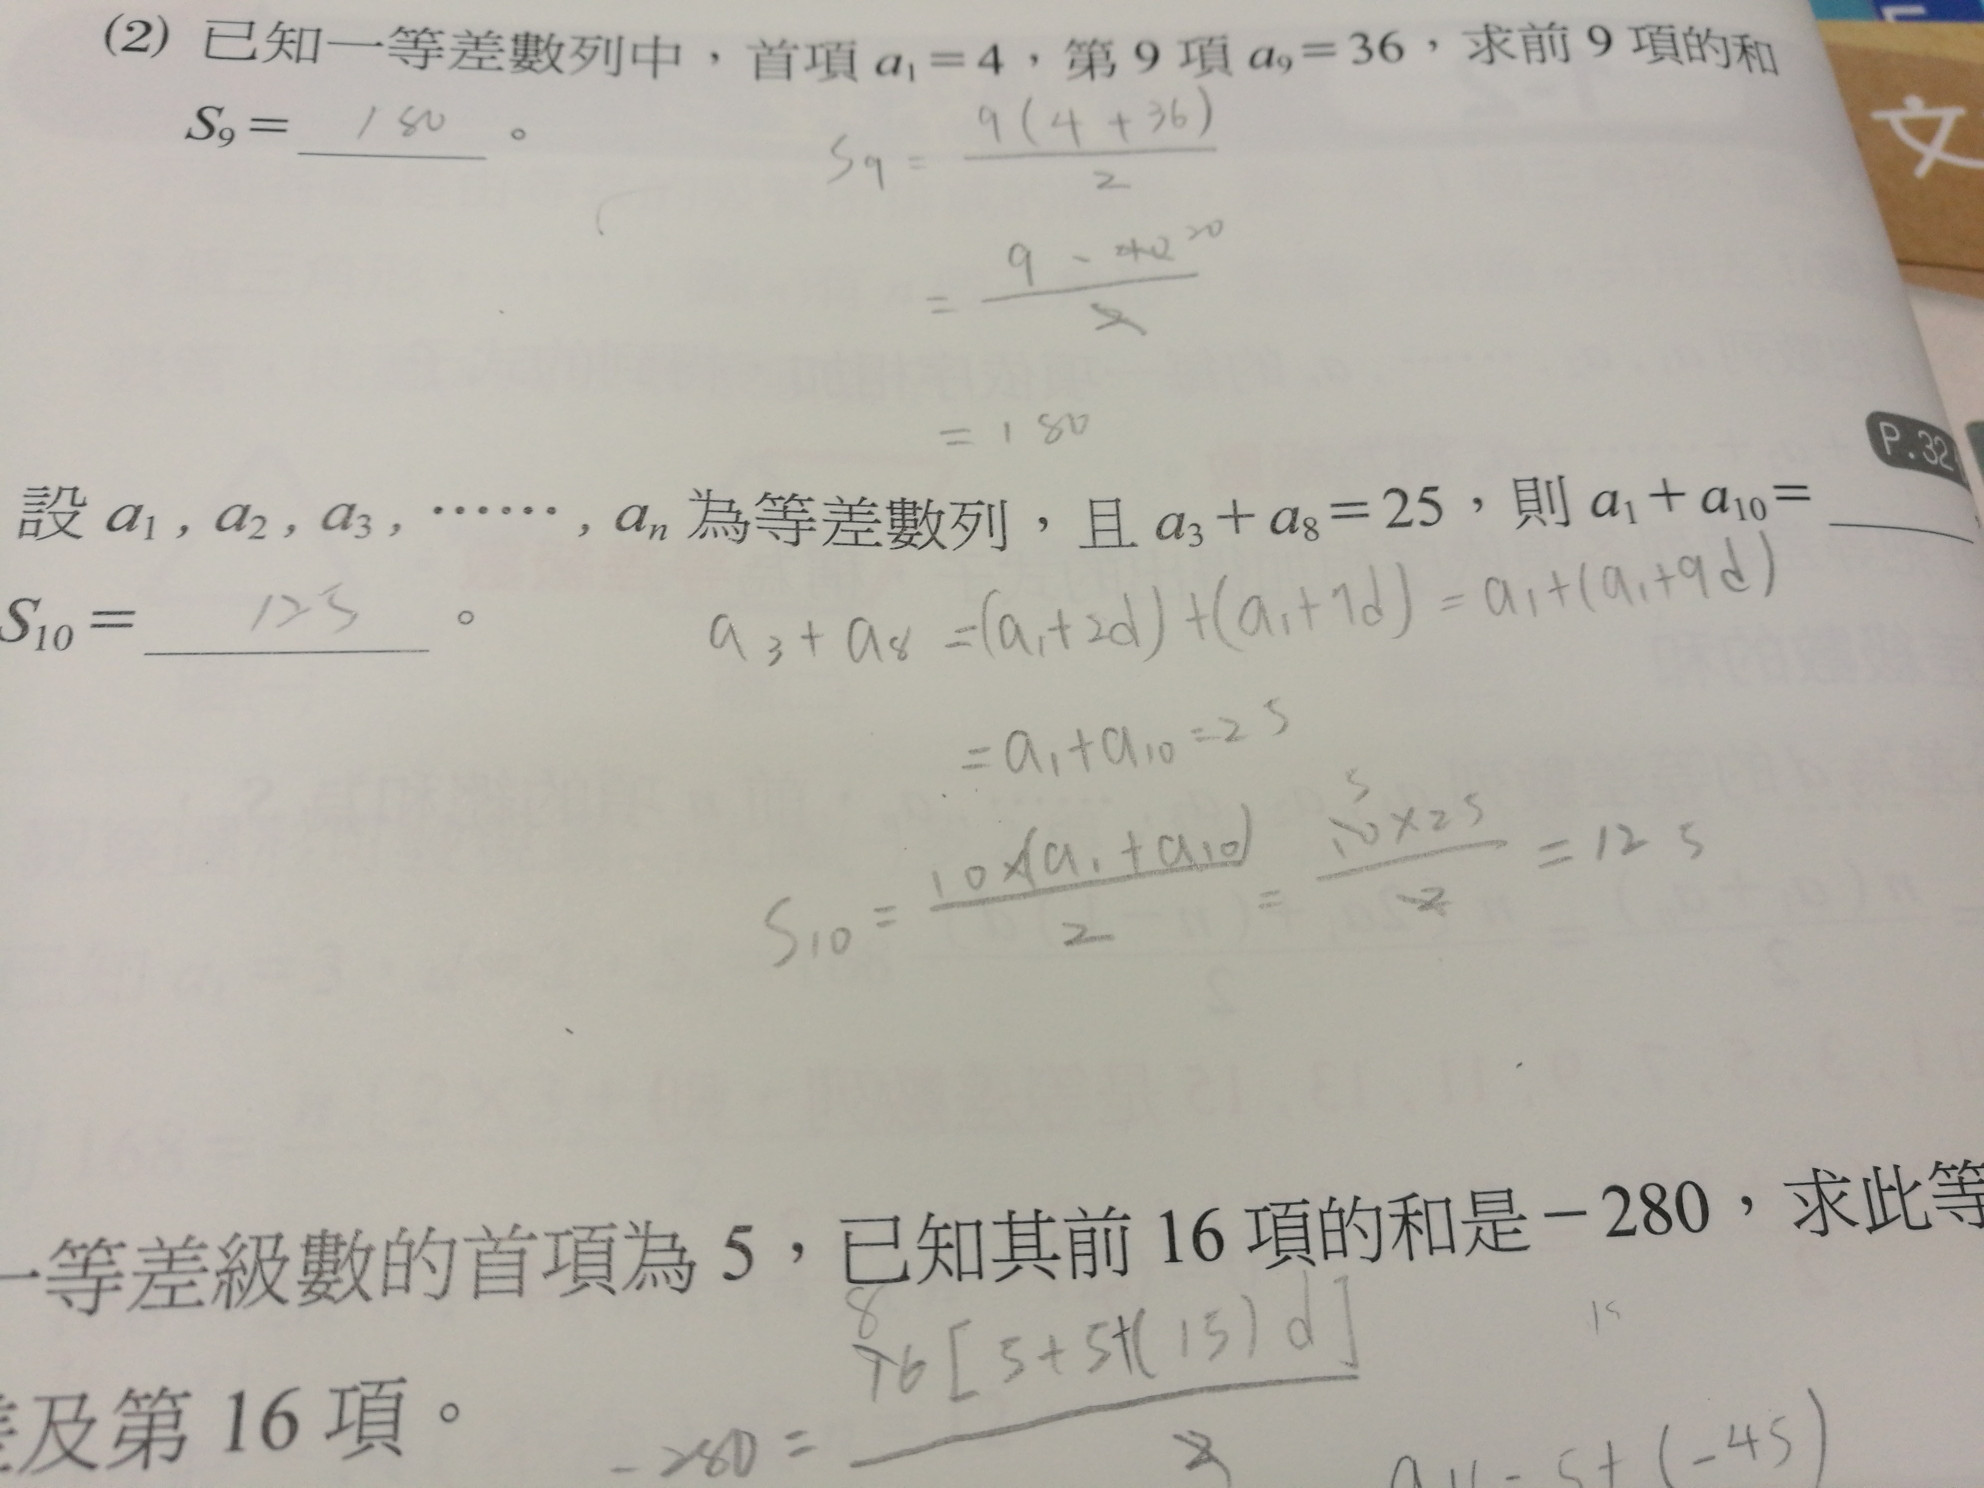 (2) 已知一等差數列中，首項 a₁=4，第 9 項 a₉=36，求前 9 項的和
S₉= 180 。
S₉ = 9(4+36)/2
= 9-40 20/2
= 180
文
P.32
設 a₁, a₂, a₃, ……, aₙ 為等差數列，且 a₃+a₈=25，則 a₁+a₁₀=
S₁₀= 125 。
a₃+a₈ =(a₁+2d)+(a₁+7d) = a₁+(a₁+9d)
=a₁+a₁₀=25
S₁₀ = 10×(a₁+a₁₀)/2 = 5 10×25/2 = 125
一等差級數的首項為 5，已知其前 16 項的和是－280，求此等
差及第 16 項。
-280 = 8 16[5+5+(15)d]/2
5+(-45)